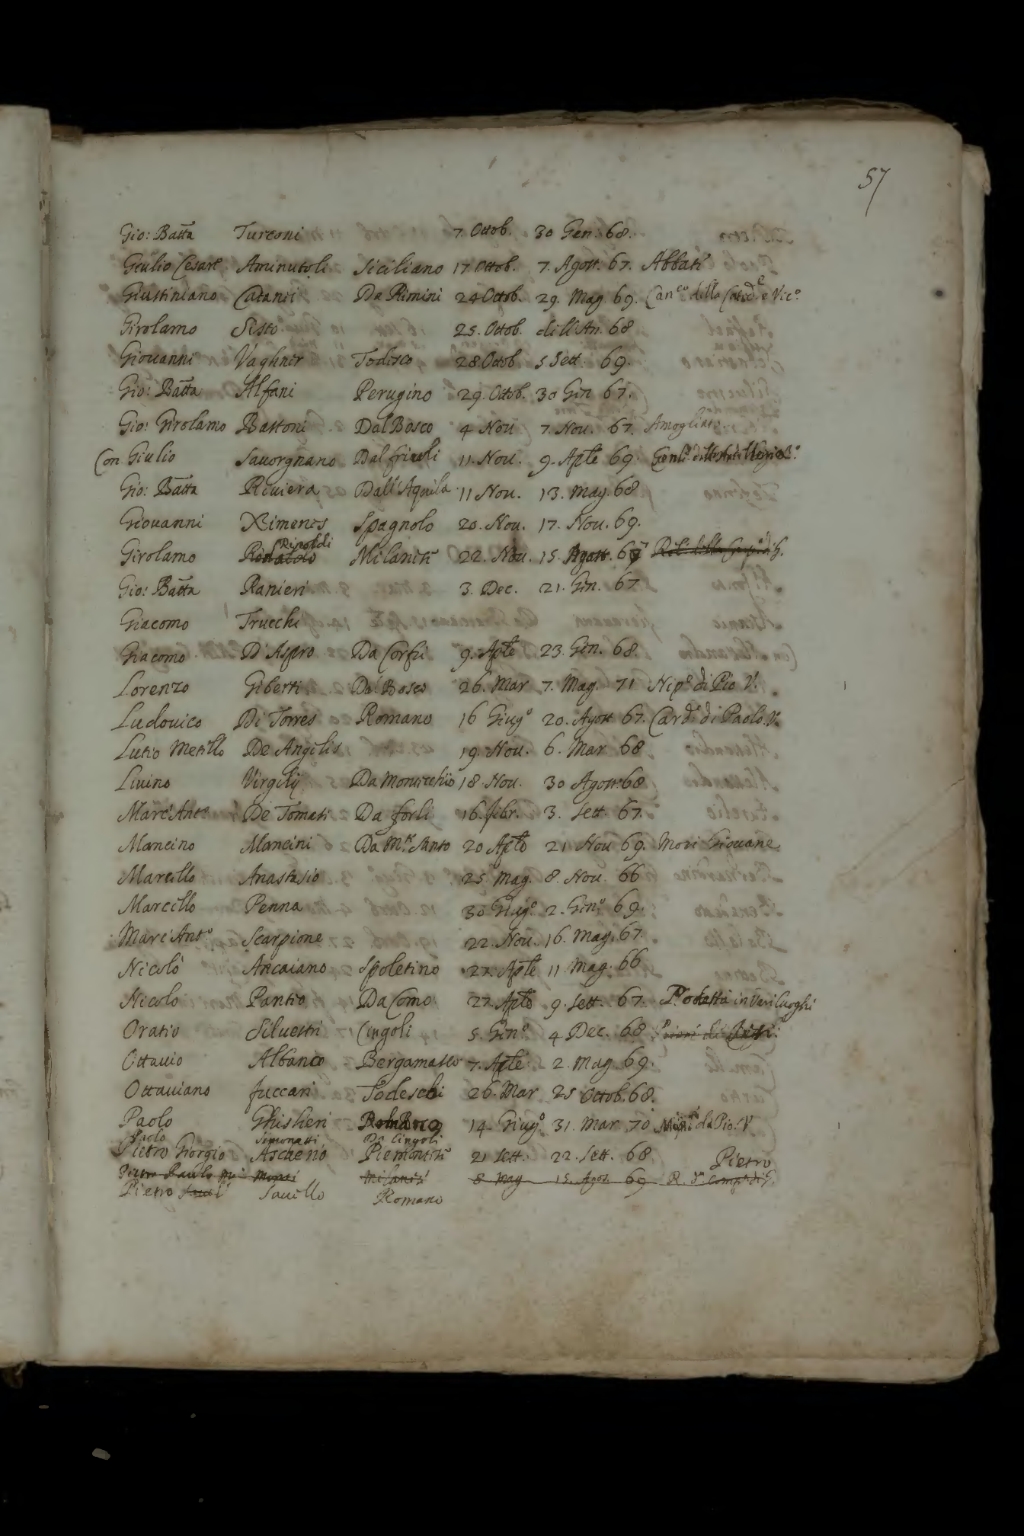 57
Gio: Batta Turconi 7. Ottob. 30 Gen. 68.
Giulio Cesare Aminutoli Siciliano 17 Ottob. 7. Agost. 67. Abbate
Giustiniano Catanii Da Rimini 24 Ottob. 29. Mag. 69.
Girolamo Sisto 25. Ottob. dell'An. 68
Giovanni Vaghner Todesco 28. Ottob. 5 Sett. 69.
Gio: Batta Alfani Perugino 29. Ottob. 30 Gen. 67.
Gio: Girolamo Bastoni Dal Bosco 4 Nov. 7. Nou. 67.
Con Giulio Sauorgnano Dal friuli 11. Nou. 9. Aple 69
Gio: Batta Riuiera Dall'Aquila 11 Nou. 13. Mag. 68
Giouanni Ximenes Spagnolo 20. Nou. 17. Nou. 69.
Girolamo Rinaldi Milanese 22. Nou. 15. Agost. 67
Gio: Batta Ranieri 3. Dec. 21. Gen. 67.
Giacomo Trucchi
Giacomo D'Aspro Da Corfù 9. Aple 23. Gen. 68.
Lorenzo Giberti Dal Bosco 26. Mar 7. Mag. 71 Nip.e di Pio V.
Ludouico Di Torres Romano 16 Giug.o 20. Agost 67. Card. di Paolo V.
Lutio Metello De Angelis 19. Nou. 6. Mar 68
Liuino Virgilij 18. Nou. 30 Agost 68
Marc'Ant.o De Tomati Da forli 16. febr. 3. Sett. 67.
Mancino Mancini Da M.te Santo 20 Aple 21 Nou 69. Mori Giouane
Marcello Anastasio 25 Mag. 8. Nou. 66
Marcello Penna 30 Giug.o 2. Gen.o 69.
Marc'Ant.o Scarpione 22. Nou. 16. Mag. 67.
Nicolò Ancaiano Spoletino 27. Aple 11 Mag. 66
Nicolo Pantio Da Como 27. Aple 9. Sett. 67.
Oratio Siluestri Cingoli 5. Gen.o 4 Dec. 68
Ottauio Albanco Bergamasco 7. Aple 2. Mag. 69.
Ottauiano fuccari Todeschi 26. Mar 25 Ottob. 68.
Paolo Ghisleri Romano 14. Giug.o 31. Mar 70 Nip.e di Pio V
Paolo Simonetti Da Cingoli
Pietro Giorgio Ascherio Piemontese 21 Sett. 22. Sett. 68 Pietro
Pietro Paulo Milanese 8 Mag 15. Agost. 69
Pietro Sauello Romano